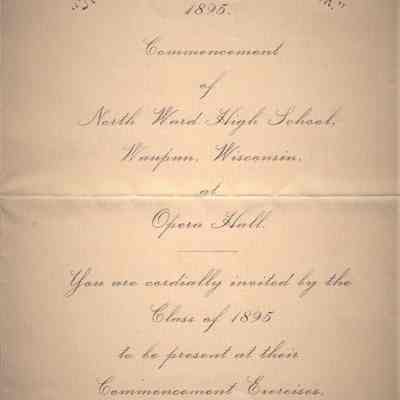 1895.
Commencement
of
North Ward High School,
Waupun, Wisconsin,
at
Opera Hall.
You are cordially invited by the
Class of 1895
to be present at their
Commencement Exercises,